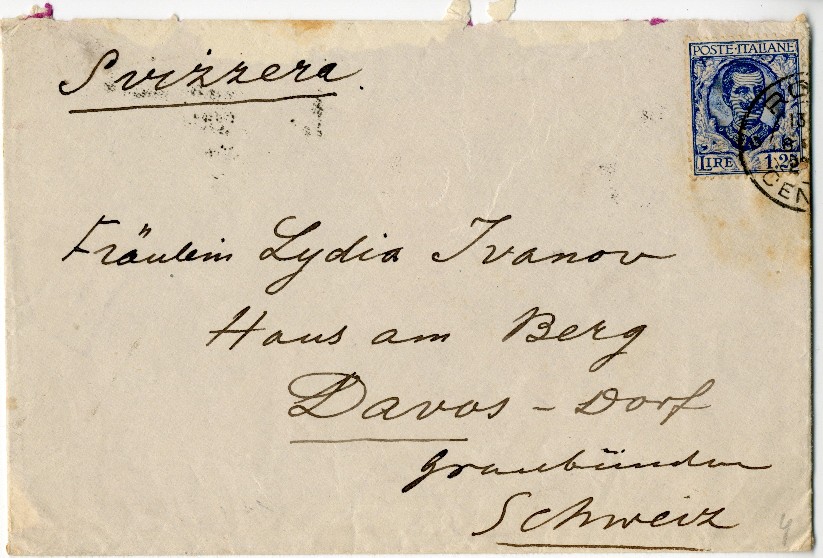 Svizzera.
POSTE·ITALIANE
LIRE 1·25
CEN
Fräulein Lydia Ivanov
Haus am Berg
Davos - Dorf
Graubünden
Schweiz